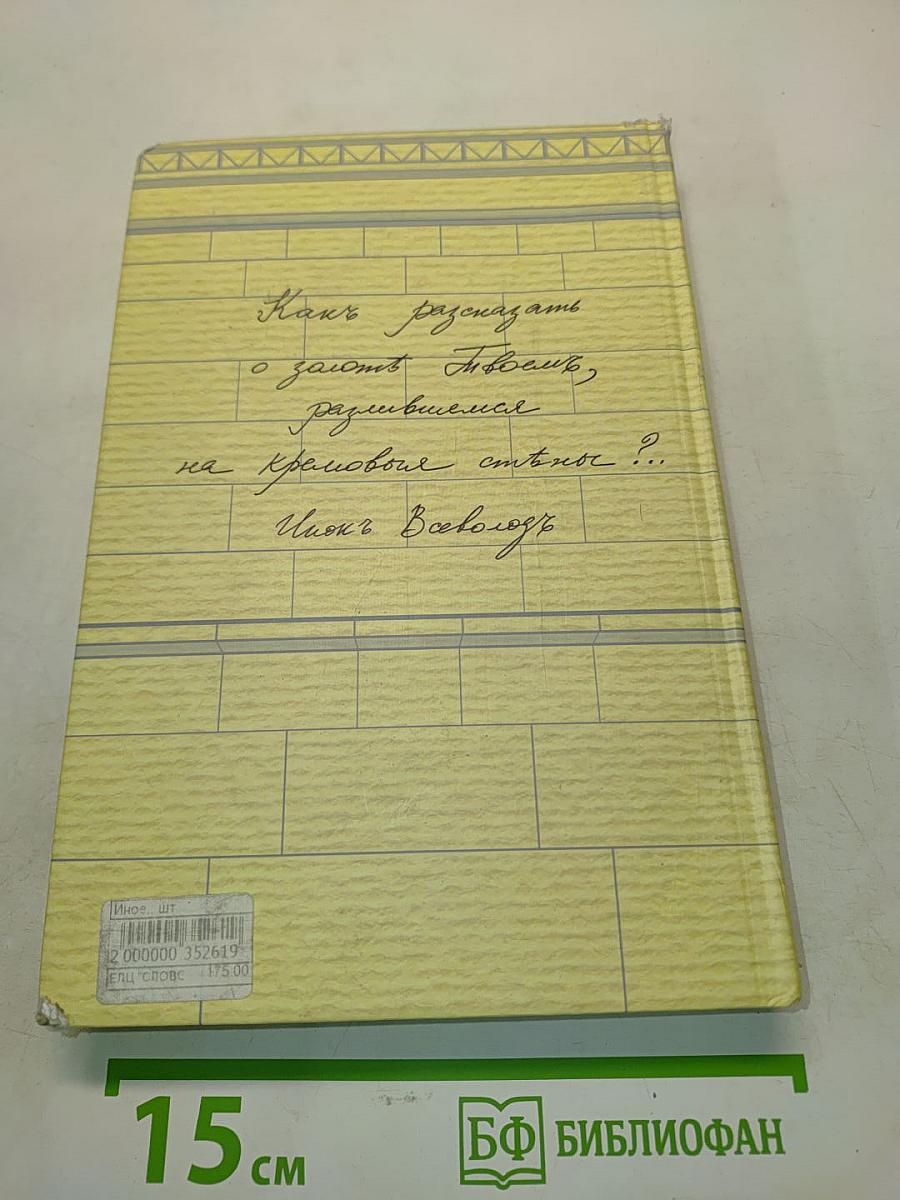 Какъ разсказать
о золотѣ Твоемъ,
разлившемся
на кремовыя стѣны?..
Инокъ Всеволодъ
Иное.. шт
2 000000 352619
ЕЛЦ "СЛОВС 175.00
15 см
БФ БИБЛИОФАН